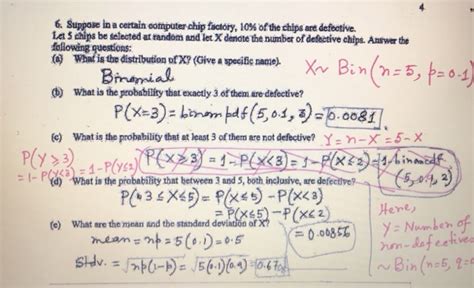 4
6. Suppose in a certain computer chip factory, 10% of the chips are defective.
Let 5 chips be selected at random and let X denote the number of defective chips. Answer the
following questions:
(a) What is the distribution of X? (Give a specific name).
Binomial
X ~ Bin(n=5, p=0.1)
(b) What is the probability that exactly 3 of them are defective?
P(X=3) = binompdf(5,0.1,3) = 0.0081
(c) What is the probability that at least 3 of them are not defective? Y = n-X = 5-X
P(Y≥3)
= 1-P(Y<3) = 1-P(Y≤2)
P(X≥3) = 1-P(X<3) = 1-P(X≤2) = 1-binomcdf
(5,0.1,2)
(d) What is the probability that between 3 and 5, both inclusive, are defective?
P(3≤X≤5) = P(X≤5) - P(X<3)
= P(X≤5) - P(X≤2)
= 0.00856
Here,
Y = Number of
non-defectives
~ Bin(n=5,
(e) What are the mean and the standard deviation of X?
mean = np = 5(0.1) = 0.5
Stdv. = √np(1-p) = √5(0.1)(0.9) =